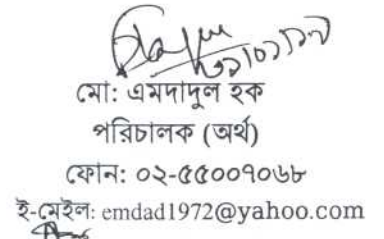 মো: এমদাদুল হক
পরিচালক (অর্থ)
ফোন: ০২-৫৫০০৭০৬৮
ই-মেইল: emdad1972@yahoo.com